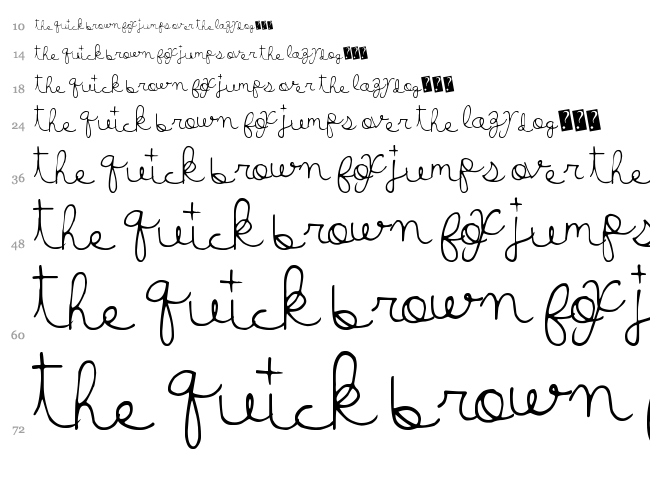 10 the quick brown fox jumps over the lazy dog
14 the quick brown fox jumps over the lazy dog
18 the quick brown fox jumps over the lazy dog
24 the quick brown fox jumps over the lazy dog
36 the quick brown fox jumps over the
48 the quick brown fox jumps
60 the quick brown fox j
72 the quick brown